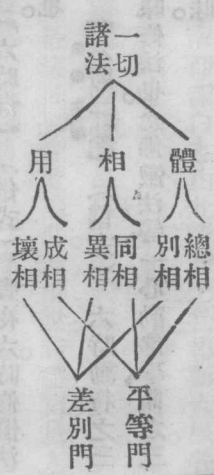 一切
諸法
體
相
用
總相
別相
同相
異相
成相
壞相
平等門
差別門